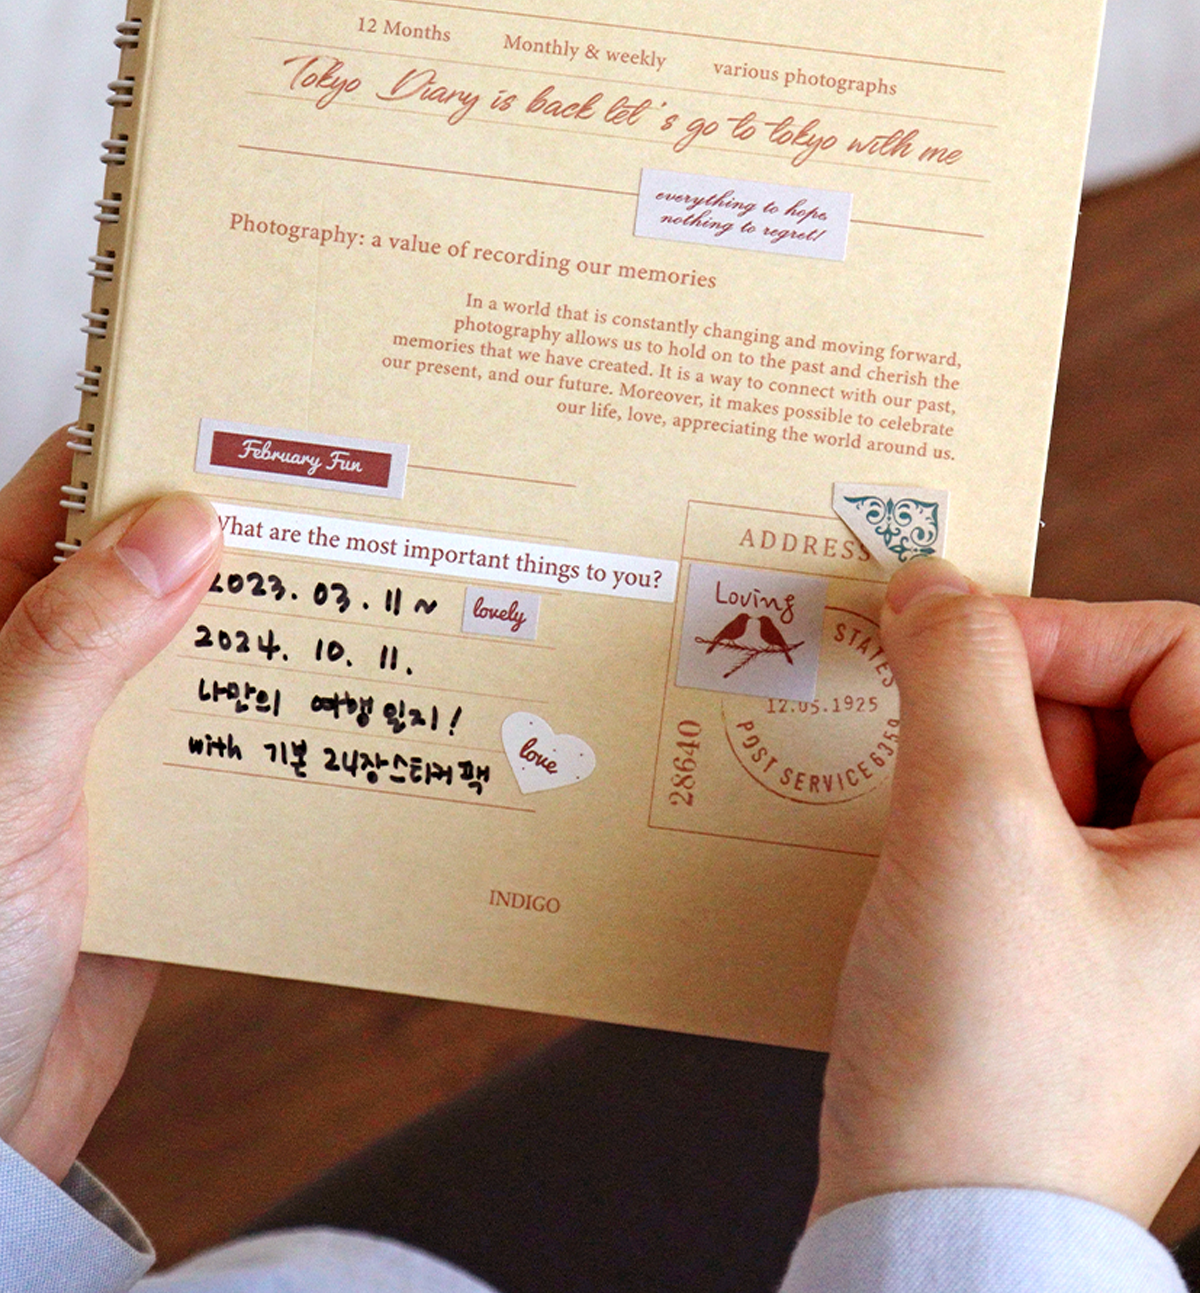 12 Months Monthly & weekly various photographs
Tokyo Diary is back let's go to tokyo with me
everything to hope,
nothing to regret!
Photography: a value of recording our memories
In a world that is constantly changing and moving forward,
photography allows us to hold on to the past and cherish the
memories that we have created. It is a way to connect with our past,
our present, and our future. Moreover, it makes possible to celebrate
our life, love, appreciating the world around us.
February Fun
What are the most important things to you?
2023. 03. 11 ~
lovely
2024. 10. 11.
나만의 여행 일지!
with 기본 24장 스티커 팩
love
ADDRESS
Loving
STATES
12.05.1925
POST SERVICE 6350
28640
INDIGO